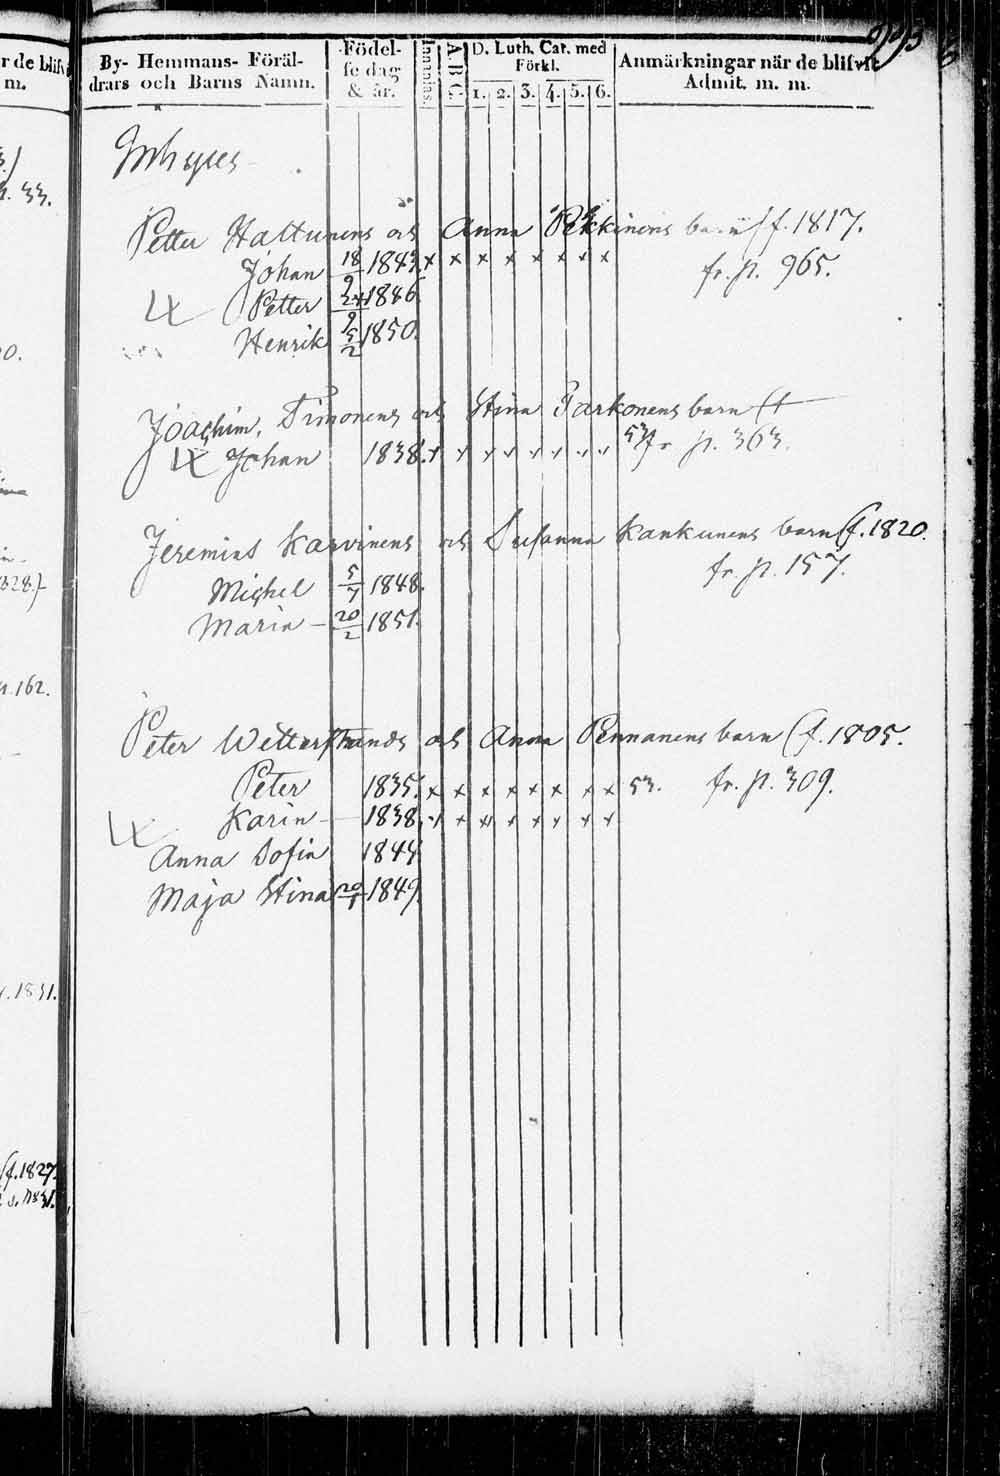 993
By- Hemmans- Föräl-
drars och Barns Namn.
Födel-
se dag
& år.
Innanläs.
A.B.C.
D. Luth. Cat. med
Förkl.
1. 2. 3. 4. 5. 6.
Anmärkningar när de blifvit
Admit. m. m.
Inhyses
Petter Hattunens och Anna Pekkinens barn (f. 1817.
Johan 18/9 1843. x x x x x x x x fr. p. 965.
Petter 24/9 1846.
Henrik 5/2 1850.
Joachim Timonens och Stina Parkonens barn (f
Johan 1838. x x x x x x x x 53 fr p. 363.
Jeremias Karvinens och Susanna Kankunens barn (f. 1820.
fr. p. 157.
Michel 5/7 1848.
Maria 20/2 1851.
Peter Wetterstrands och Anna Pennanens barn (f. 1805.
Peter 1835. x x x x x x x x 53. fr. p. 309.
Karin 1838. x x x x x x x x
Anna Sofia 1844
Maja Stina 20/1 1849.
r de blifvi
m.
n. 33.
0.
828.)
n. 162.
1831.
(f. 1827.